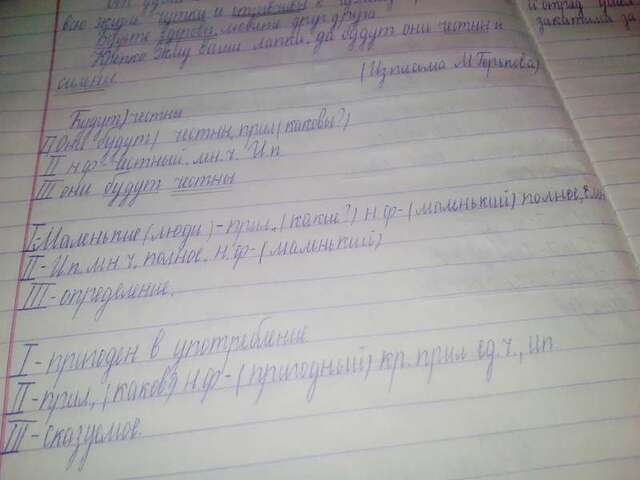 всю жизнь чутки и отзывчивы к
Будьте здоровы, любите друг друга
Крепко жму ваши лапки, да будут они честны и
сильны.
(Из письма М Горького)
и отряд
закатами за
(Будут) честны
II Они (будут) честны, прил (каковы?)
II н.ф - честный. мн.ч. И.п
III они будут честны
I-Маленькие (люди) - прил, (какие?) н ф-(маленький) полное,
II-И.п. мн ч, полное. н. ф-(маленький)
III-определение.
I-пригоден в употребление
II-прил, (каков?) н.ф-(пригодный) кр. прил ед.ч., ип
III-Сказуемое.